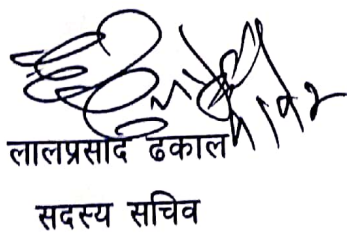 लालप्रसाद ढकाल
सदस्य सचिव